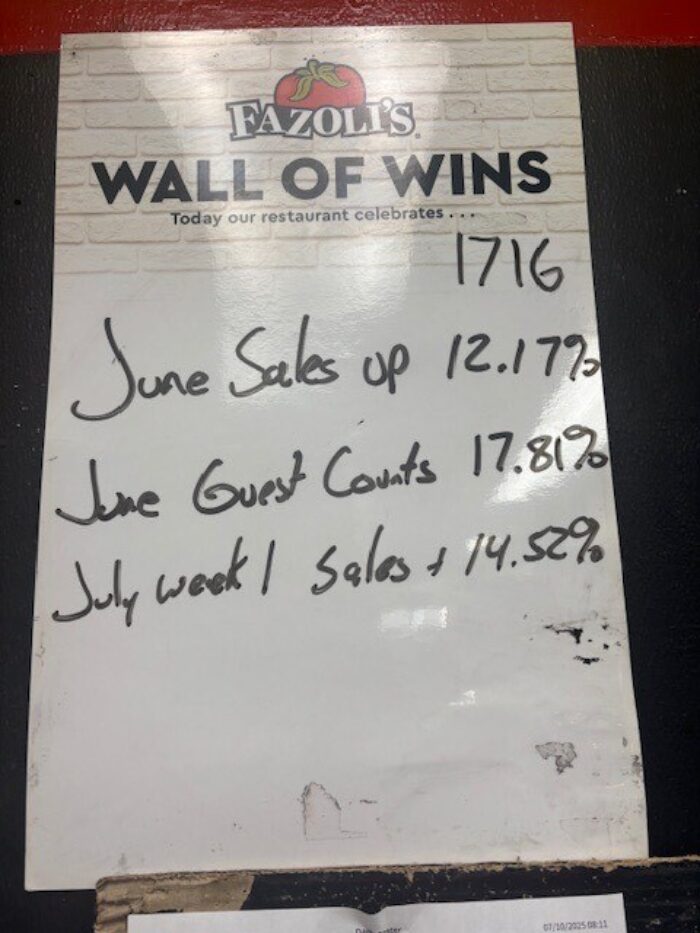 FAZOLI'S
WALL OF WINS
Today our restaurant celebrates . . .
1716
June Sales up 12.17%
June Guest Counts 17.81%
July week 1 Sales + 14.52%
07/10/2025 08:11